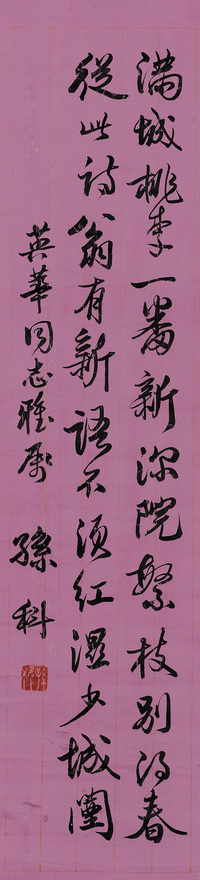 滿城桃李一番新深院繁枝別得春
從此詩翁有新語不須紅濕少城闉
英華同志雅屬
孫科